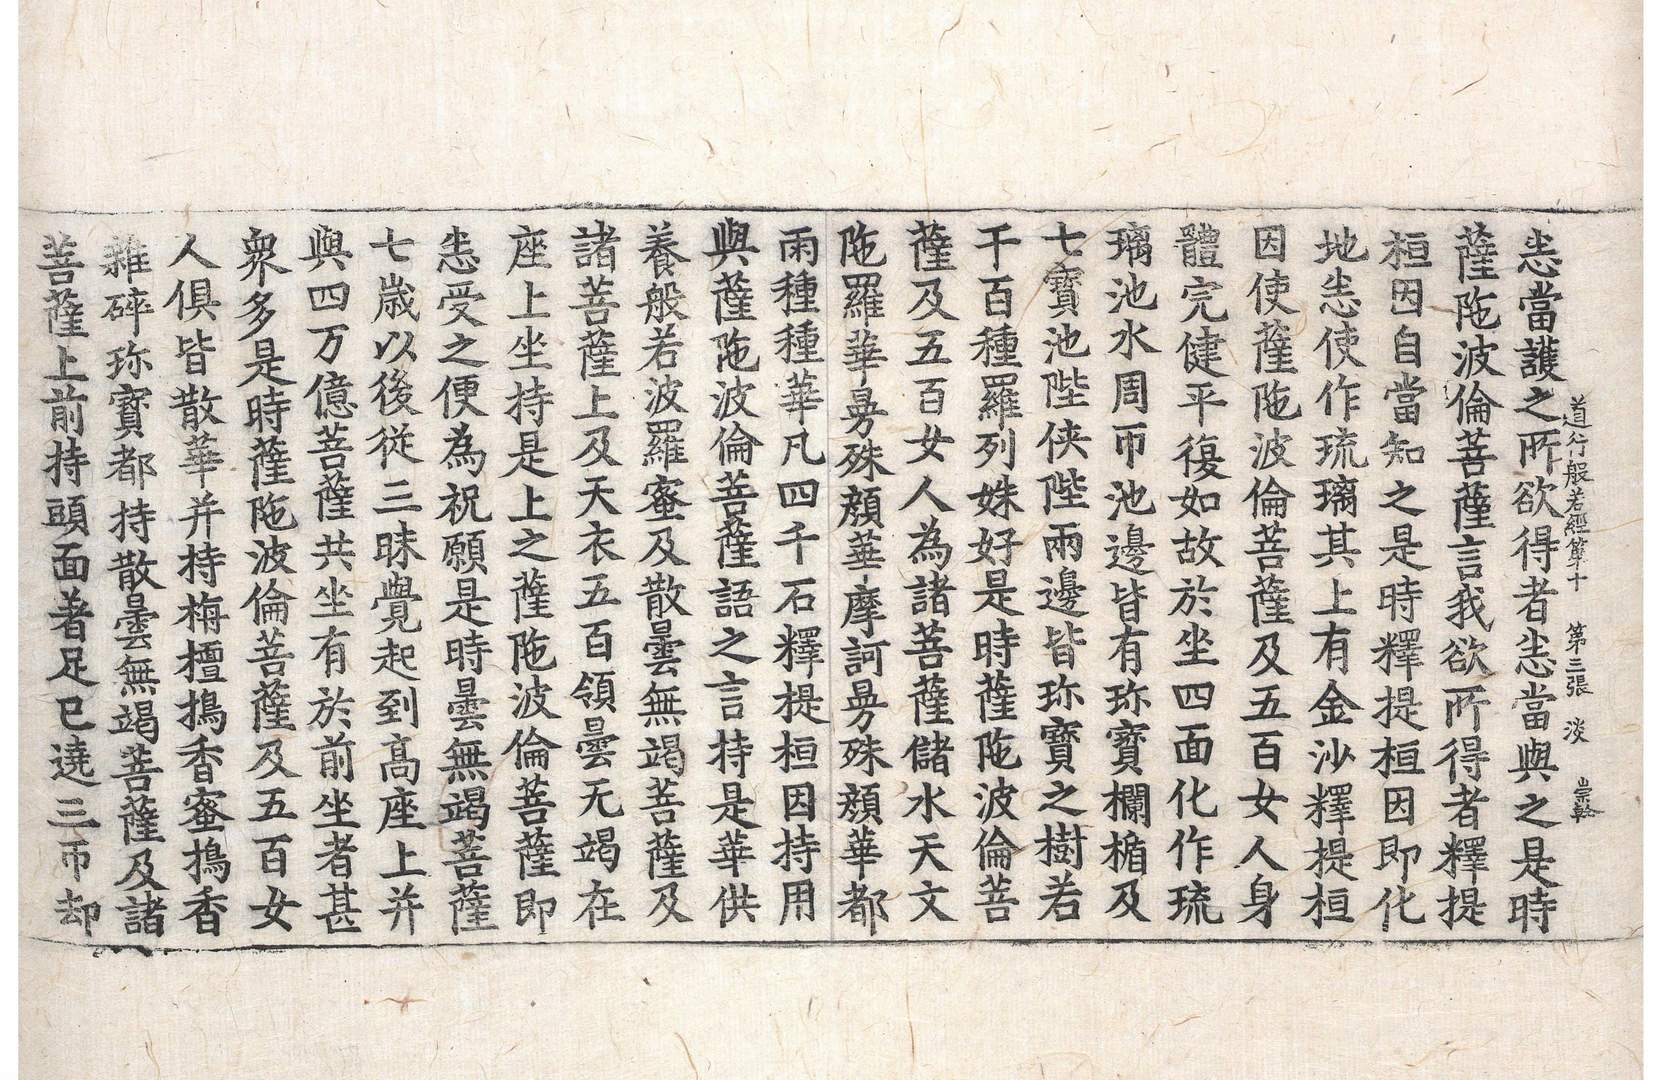 道行般若經第十 第三張 淡 崇幹
恙當護之所欲得者恙當與之是時
薩陁波倫菩薩言我欲所得者釋提
桓因自當知之是時釋提桓因即化
地恙使作琉璃其上有金沙釋提桓
因使薩陁波倫菩薩及五百女人身
體完健平復如故於坐四面化作琉
璃池水周帀池邊皆有珎寶欄楯及
七寶池陛俠陛兩邊皆珎寶之樹若
干百種羅列姝好是時薩陁波倫菩
薩及五百女人為諸菩薩儲水天文
陁羅華曼殊顔華摩訶曼殊顔華都
雨種種華凡四千石釋提桓因持用
與薩陁波倫菩薩語之言持是華供
養般若波羅蜜及散曇無竭菩薩及
諸菩薩上及天衣五百領曇无竭在
座上坐持是上之薩陁波倫菩薩即
恙受之便為祝願是時曇無竭菩薩
七歲以後從三昧覺起到高座上并
與四万億菩薩共坐有於前坐者甚
衆多是時薩陁波倫菩薩及五百女
人俱皆散華并持栴檀擣香蜜擣香
雜碎珎寶都持散曇無竭菩薩及諸
菩薩上前持頭面著足已遶三帀却